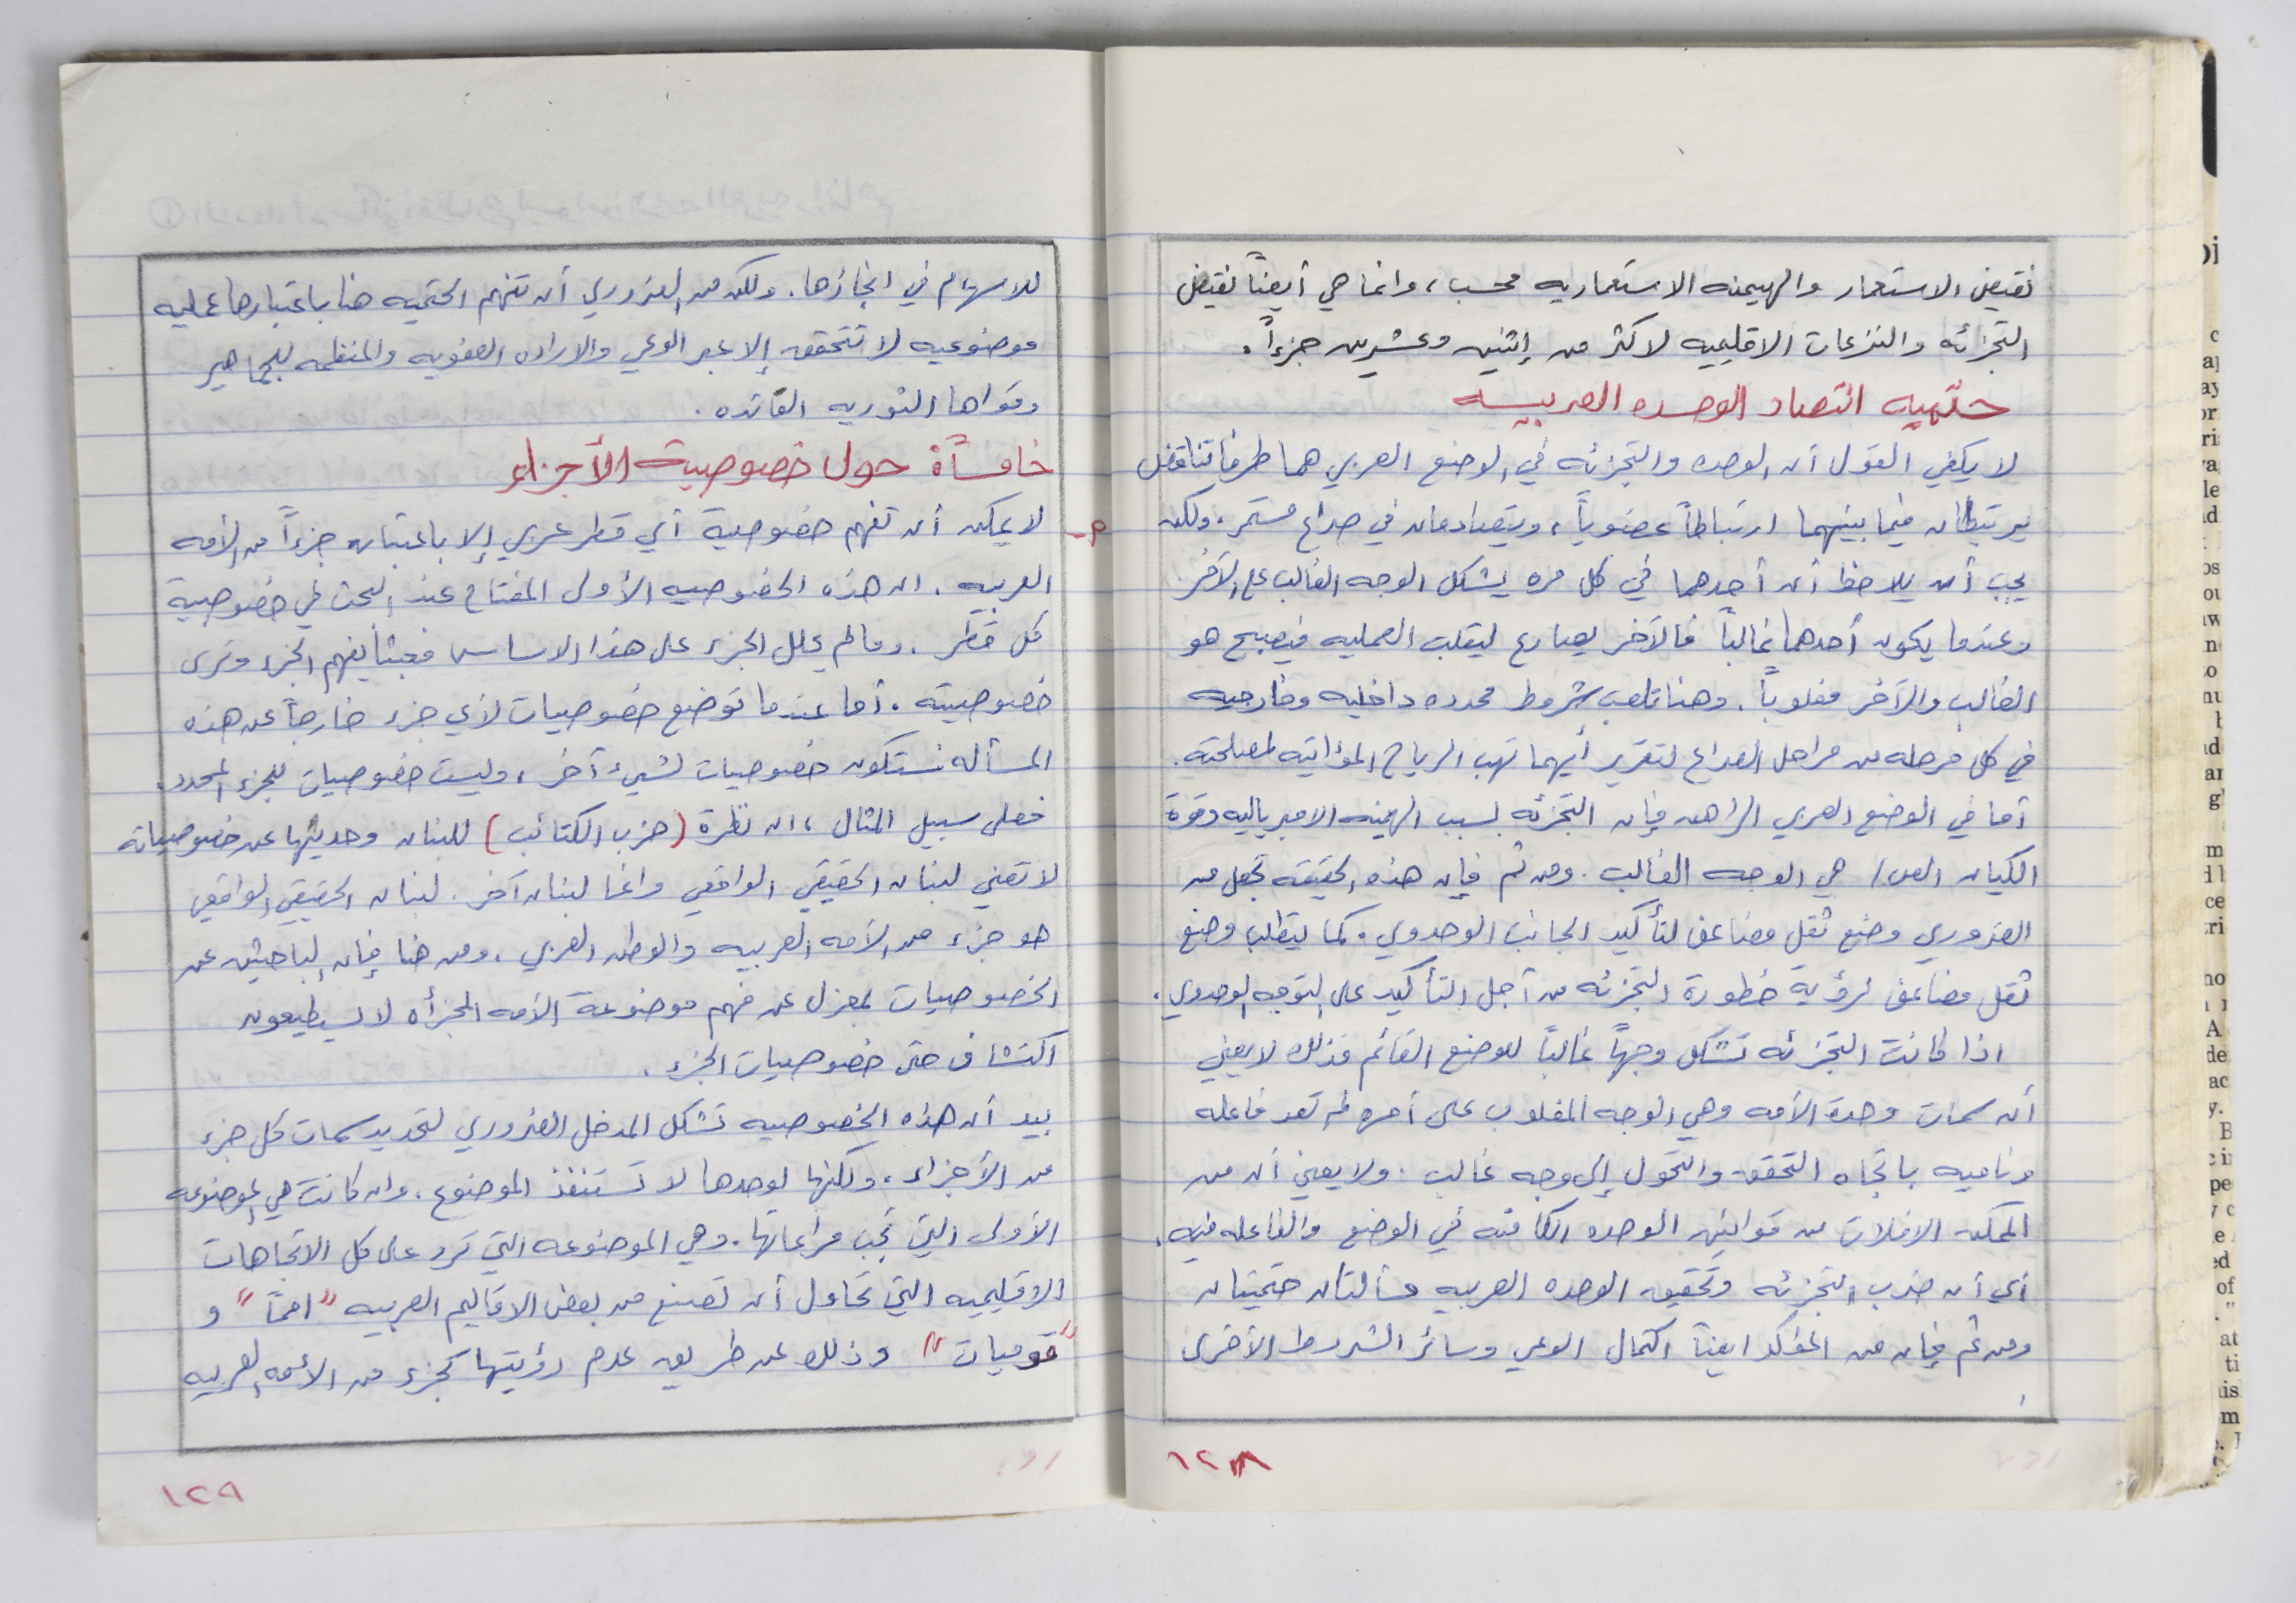 نقيض الاستعمار والهيمنه الاستعماريه فحسب، وانما هي أيضاً نقيض
التجزئه والنزعات الاقليميه لاكثر من إثنين وعشرين جزءاً.
حتميه انتصار الوحده العربيه
لا يكفي القول أن الوحده والتجزئه في الوضع العربي هما طرفا تناقض
يرتبطان فيما بينهما ارتباطاً عضوياً، ويتصادمان في صراع مستمر. ولكن
يجب أن يلاحظ أن أحدهما في كل مره يشكل الوجه الغالب على الآخر
وعندما يكون أحدهما غالباً فالآخر يصارع ليقلب العمليه فيصبح هو
الغالب والآخر مغلوباً. وهنا تلعب شروط محدده داخليه وخارجيه
في كل مرحله من مراحل الصراع لتقرير أيهما تهب الرياح المؤاتيه لمصلحته.
أما في الوضع العربي الراهن فإن التجزئه بسبب الهيمنه الامبرياليه وقوة
الكيان الص/ هي الوجه الغالب. ومن ثم فإن هذه الحقيقه تجعل من
الضروري وضع ثقل مضاعف لتأكيد الجانب الوحدوي. كما يتطلب وضع
ثقل مضاعف لرؤية خطورة التجزئه من أجل التأكيد على التوجه الوحدوي.
اذا كانت التجزئه تشكل وجهاً غالباً للوضع القائم فذلك لا يعني
أن سمات وحدة الأمه وهي الوجه المغلوب على أمره لم تعد فاعله
وناميه باتجاه التحقق والتحول إلى وجه غالب. ولا يعني أن من
الممكن الافلات من قوانين الوحده الكامنه في الوضع والفاعله فيه.
أي أن ضرب التجزئه وتحقيق الوحده العربيه مسألتان حتميتان
ومن ثم فإن من المؤكد ايضاً اكتمال الوعي وسائر الشروط الأخرى
١٢٨
للاسهام في انجازها. ولكن من الضروري أن تفهم الحتميه هنا باعتبارها عمليه
موضوعيه لا تتحقق إلا عبر الوعي والاراده العفويه والمنظمه للجماهير
وقواها الثوريه القائده.
خامساً: حول خصوصية الأجزاء
م- لا يمكن أن تفهم خصوصية أي قطر عربي إلا باعتباره جزءاً من الأمه
العربيه. ان هذه الخصوصيه الأولى المفتاح عند البحث في خصوصية
كل قطر. وما لم يحلل الجزء على هذا الاساس فعبثاً يفهم الجزء وترى
خصوصيته. أما عندما توضع خصوصيات لأي جزء خارجاً عن هذه
المسأله فستكون خصوصيات لشيء آخر، وليست خصوصيات للجزء المحدد.
فعلى سبيل المثال، ان نظرة (حزب الكتائب) للبنان وحديثها عن خصوصياته
لا تعني لبنان الحقيقي الواقعي وانما لبنان آخر. لبنان الحقيقي الواقعي
هو جزء من الأمه العربيه والوطن العربي. ومن هنا فإن الباحثين عن
الخصوصيات بمعزل عن فهم موضوعة الأمه المجزأه لا يستطيعون
اكتشاف حتى خصوصيات الجزء.
بيد أن هذه الخصوصيه تشكل المدخل الضروري لتحديد سمات كل جزء
من الأجزاء. ولكنها لوحدها لا تستنفذ الموضوع. وان كانت هي الموضوعه
الأولى التي تجب مراعاتها. وهي الموضوعه التي ترد على كل الاتجاهات
الاقليميه التي تحاول أن تصنع من بعض الاقاليم العربيه "امماً" و
"قوميات" وذلك عن طريق عدم رؤيتها كجزء من الأمه العربيه
١٢٩